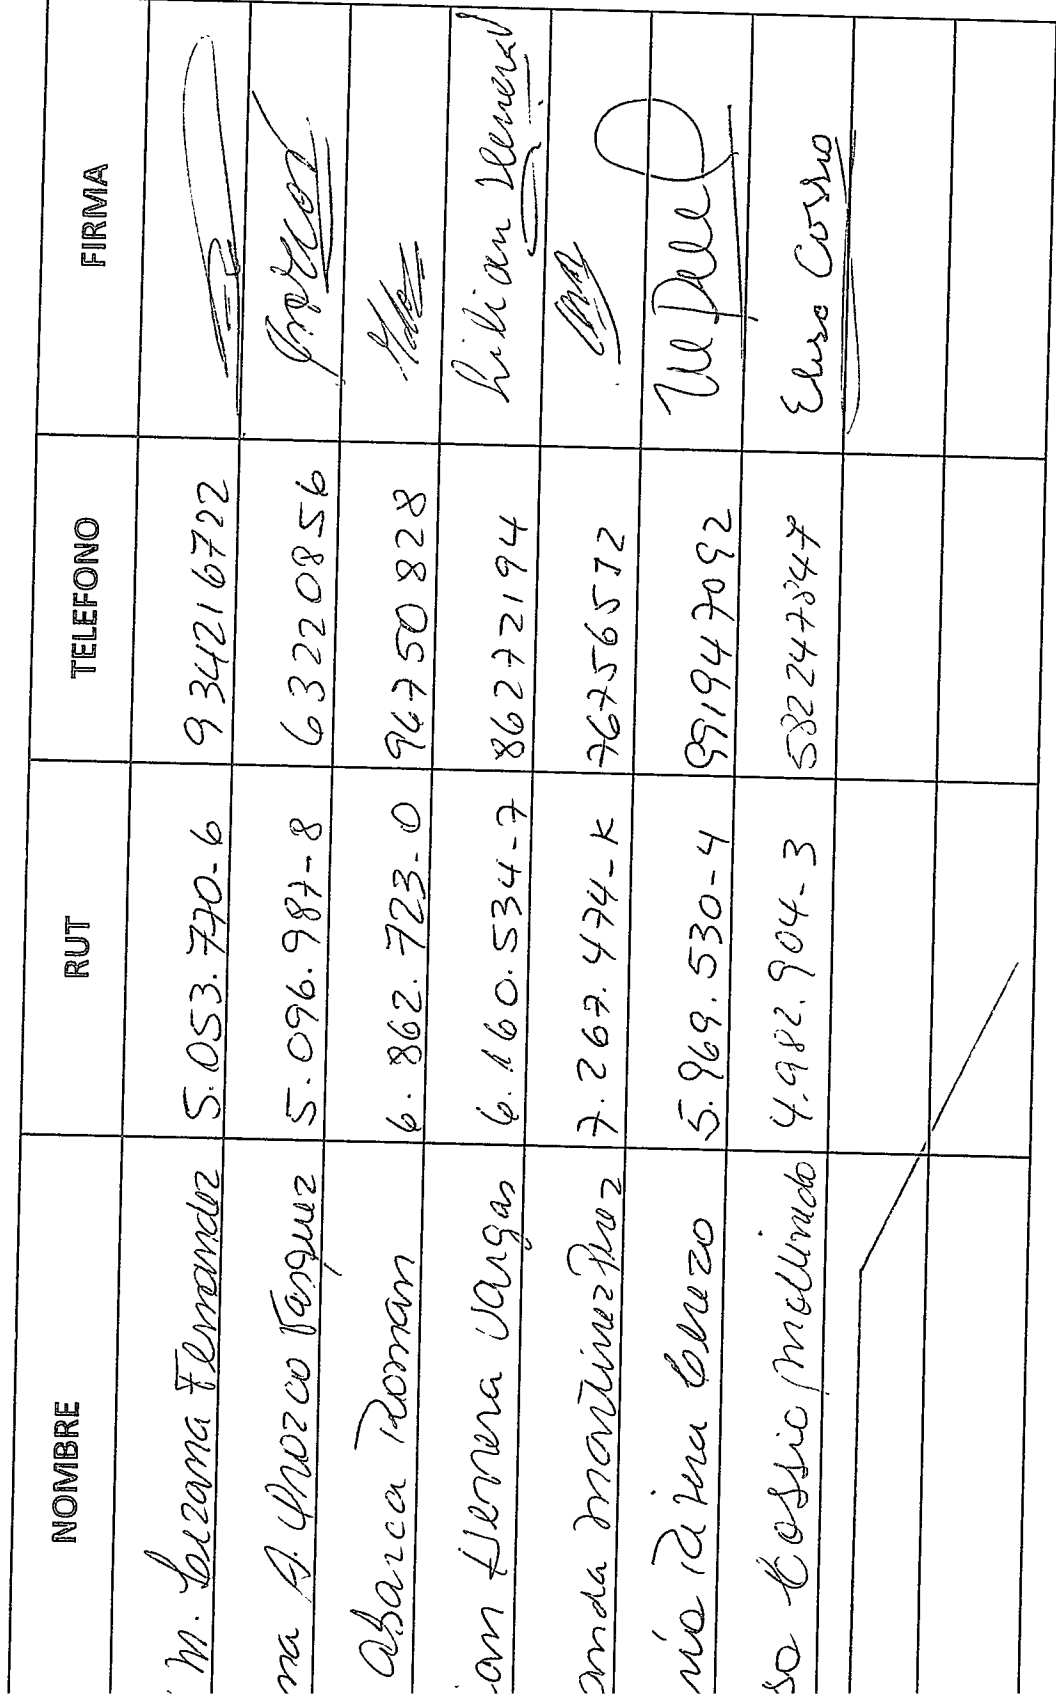 NOMBRE RUT TELEFONO FIRMA
M. Lezama Fernandez 5.053.770-6 934216722
na A. Orozco Vasquez 5.096.987-8 63220856
Abarca Roman 6.862.723-0 96750828
ian Herrera Vargas 6.160.534-7 86272194 Lilian Herrera V
anda Martinez Perez 7.267.474-K
5.969.530-4 991947092
so Cossio Mollinedo 4.982.904-3 582247847 Eliso Cossio